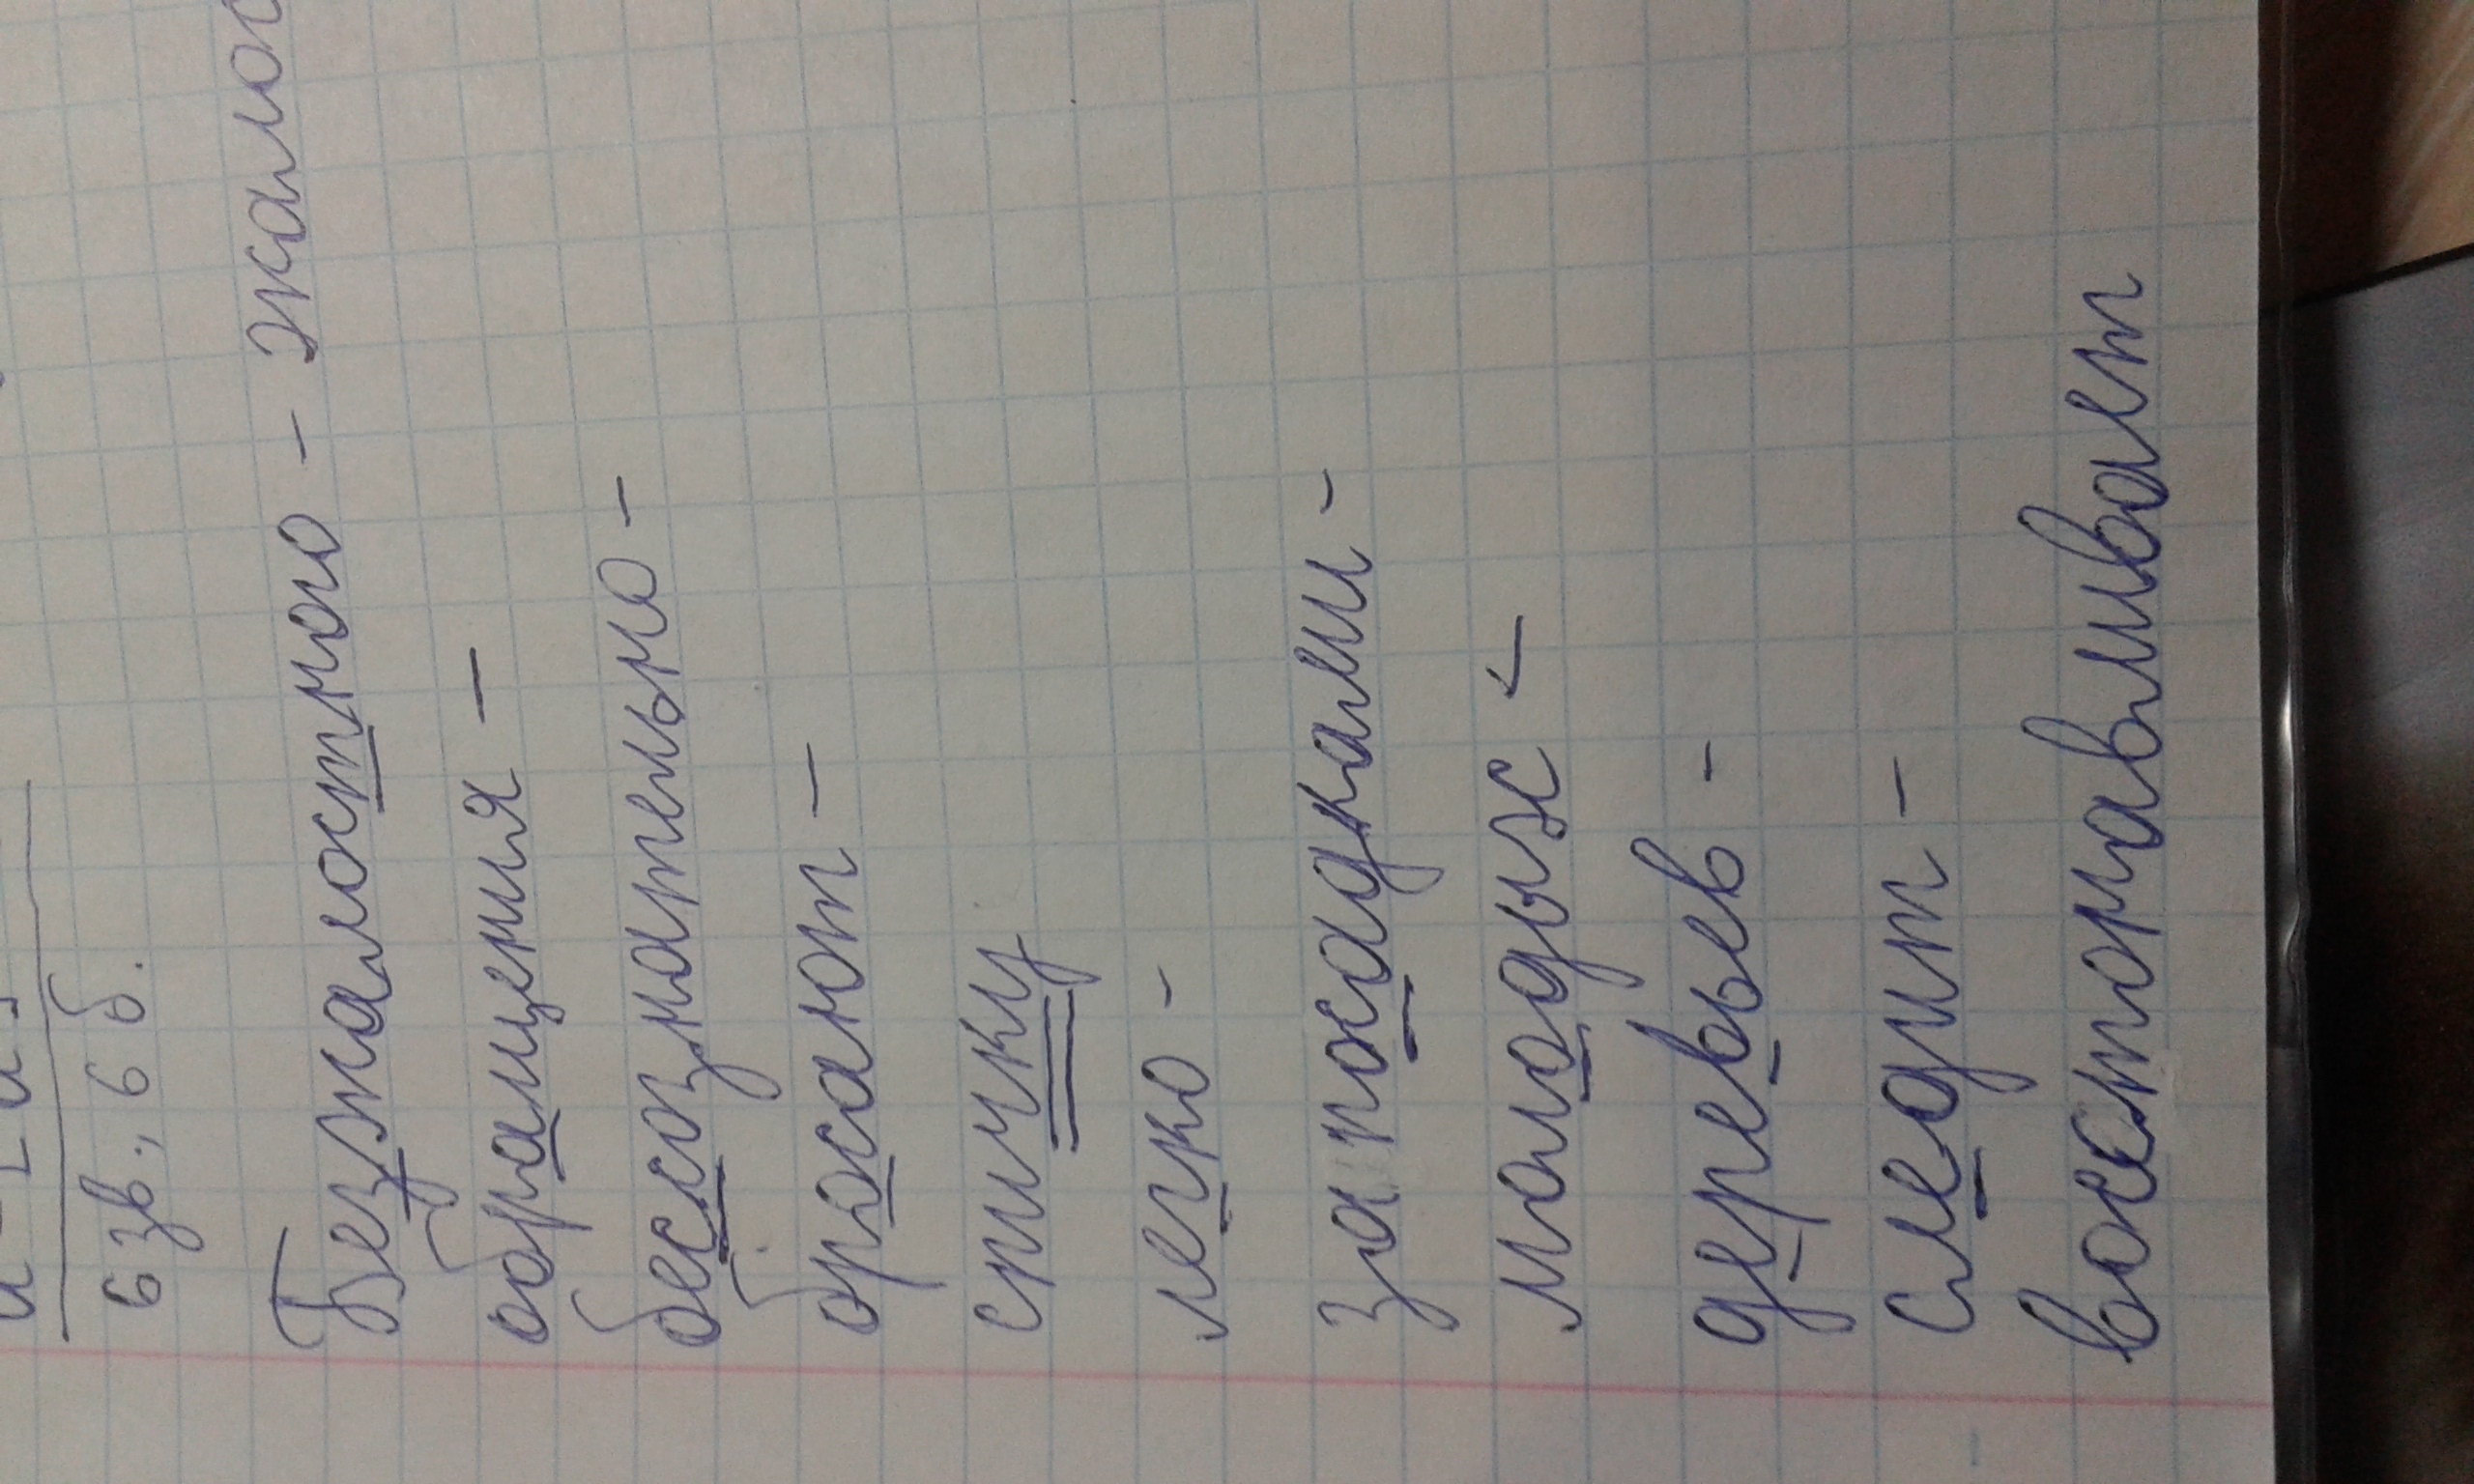 6 зв., 6 б.
Безжалостного – жалос
обращения –
бессознательно –
бросают –
спичку
легко –
за посадками –
молодых –
деревьев –
следит –
восстонавливает